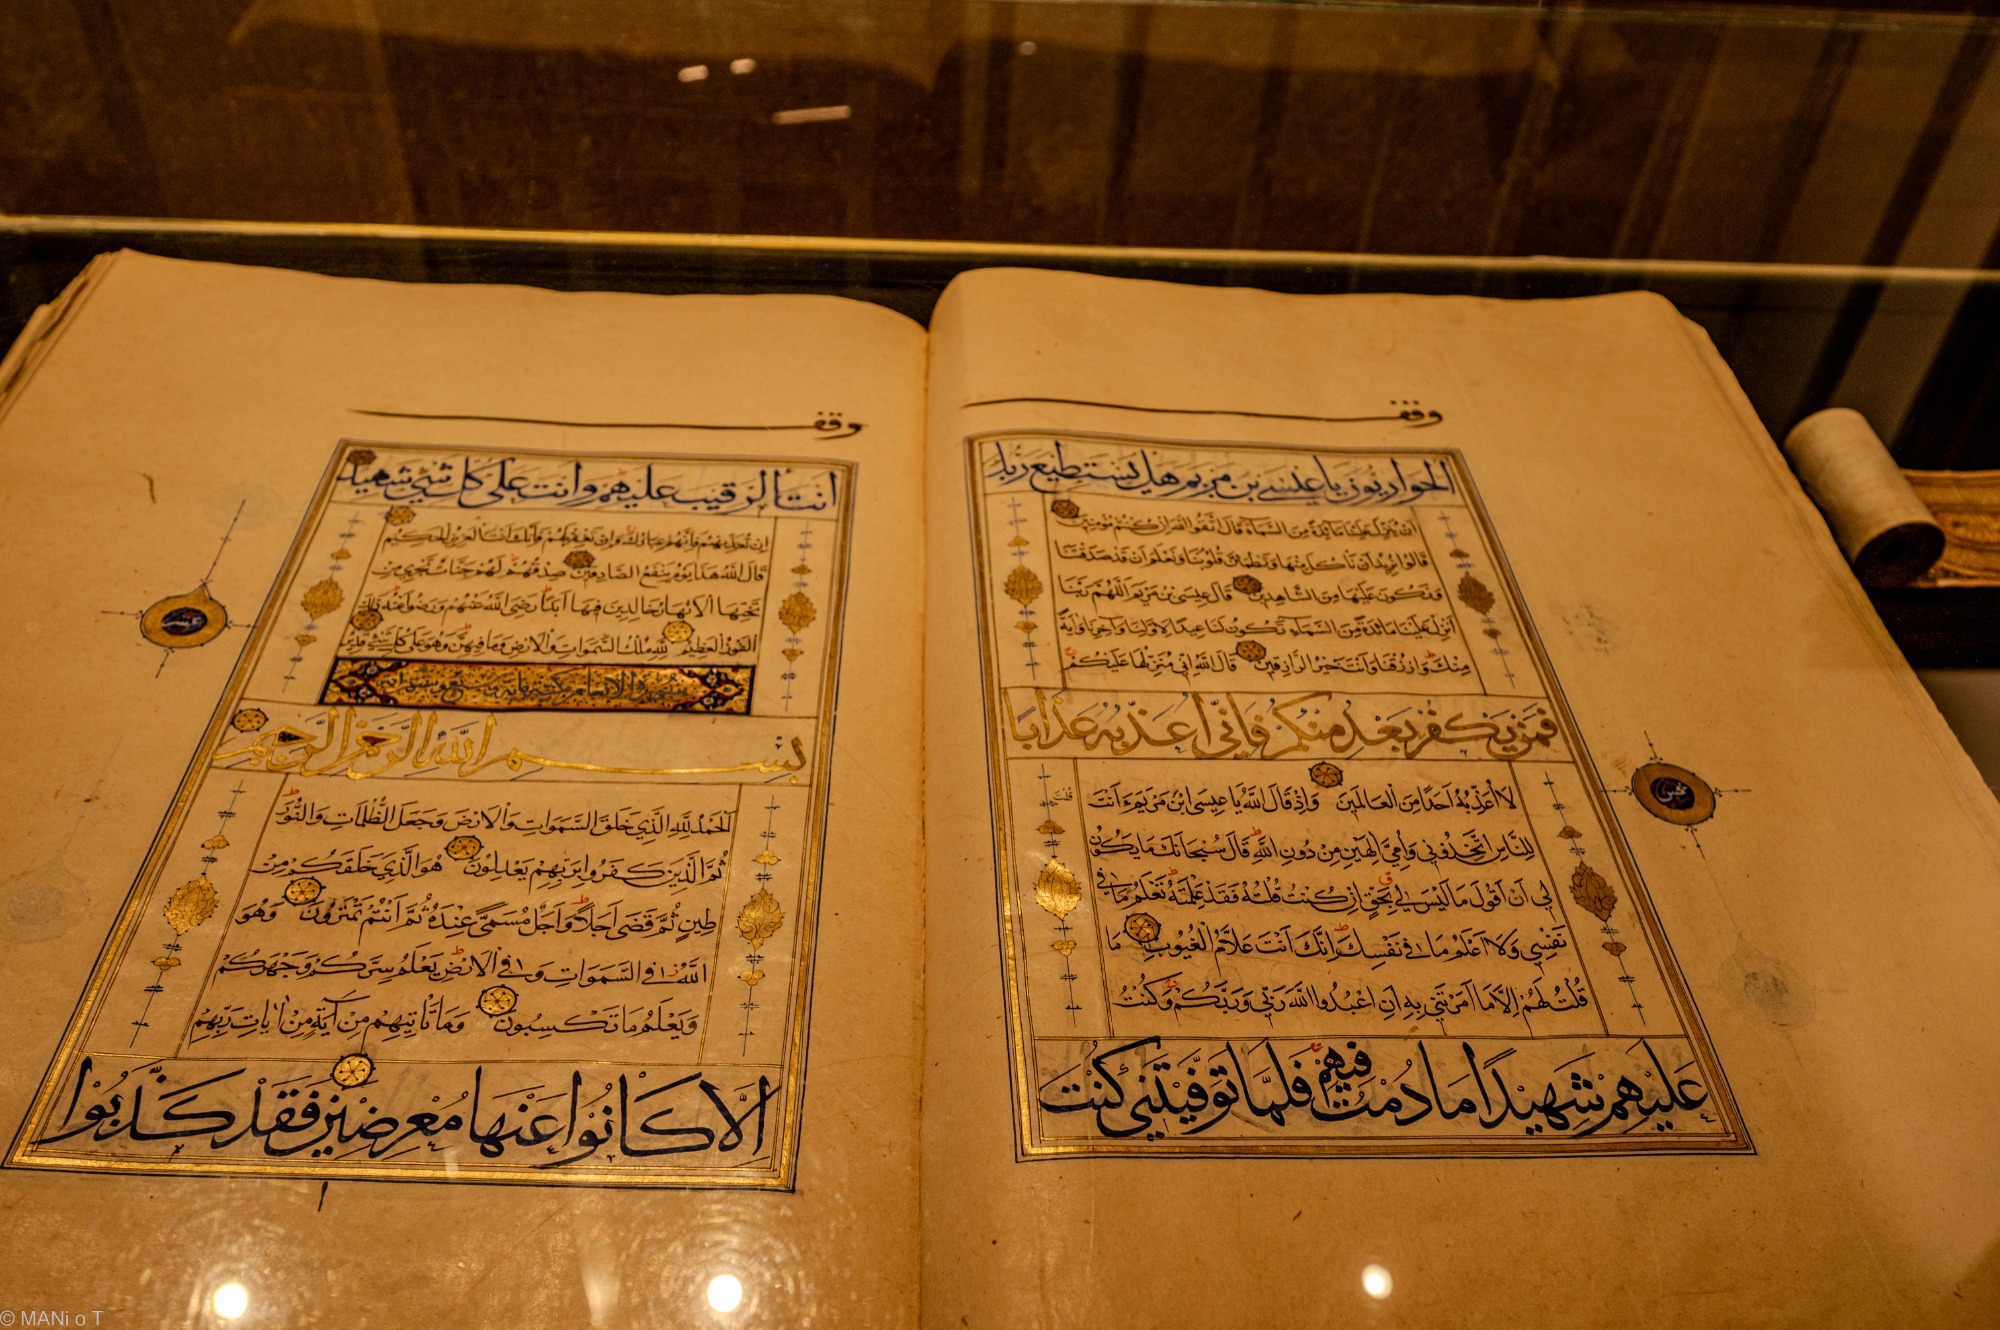 وقف
الحواريون يا عيسى بن مريم هل يستطيع ربك
ان ينزل علينا مائدة من السماء قال اتقوا الله ان كنتم مؤمنين
قالوا نريد ان ناكل منها وتطمئن قلوبنا ونعلم ان قد صدقتنا
ونكون عليها من الشاهدين قال عيسى بن مريم اللهم ربنا
انزل علينا مائدة من السماء تكون لنا عيدا لاولنا وآخرنا وآية
منك وارزقنا وانت خير الرازقين قال الله اني منزلها عليكم
فمن يكفر بعد منكم فاني اعذبه عذابا
لا اعذبه احدا من العالمين واذ قال الله يا عيسى ابن مريم ءانت
قلت
للناس اتخذوني وامي الهين من دون الله قال سبحانك ما يكون
لي ان اقول ما ليس لي بحق ان كنت قلته فقد علمته تعلم ما في
نفسي ولا اعلم ما في نفسك انك انت علام الغيوب ما
قلت لهم الا ما امرتني به ان اعبدوا الله ربي وربكم وكنت
عليهم شهيدا ما دمت فيهم فلما توفيتني كنت
خمس
وقف
انت الرقيب عليهم وانت على كل شيء شهيد
ان تعذبهم فانهم عبادك وان تغفر لهم فانك انت العزيز الحكيم
قال الله هذا يوم ينفع الصادقين صدقهم لهم جنات تجري من
تحتها الانهار خالدين فيها ابدا رضي الله عنهم ورضوا عنه ذلك
الفوز العظيم لله ملك السموات والارض وما فيهن وهو على كل شيء قدير
سورة الانعام مكية
بسم الله الرحمن الرحيم
الحمد لله الذي خلق السموات والارض وجعل الظلمات والنور
ثم الذين كفروا بربهم يعدلون هو الذي خلقكم من
طين ثم قضى اجلا واجل مسمى عنده ثم انتم تمترون وهو
الله في السموات وفي الارض يعلم سركم وجهركم
ويعلم ما تكسبون وما تاتيهم من آية من آيات ربهم
الا كانوا عنها معرضين فقد كذبوا
عشر
© MANi o T